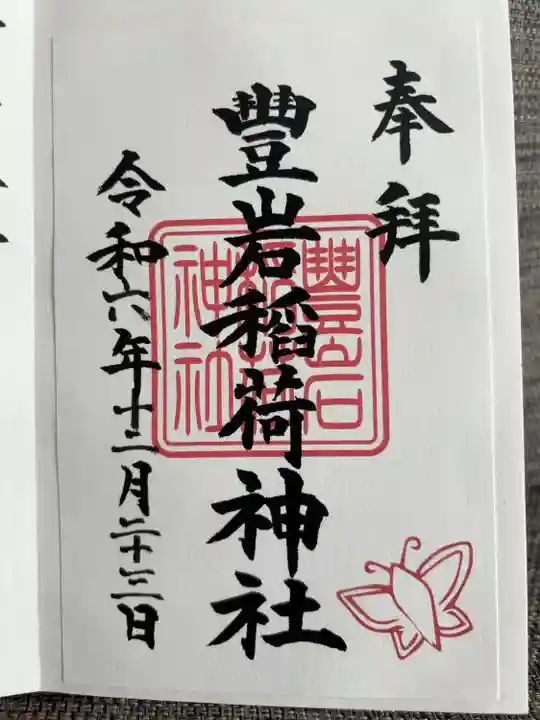 奉拝
豐岩稲荷神社
豐岩稲荷神社
令和六年十二月二十三日